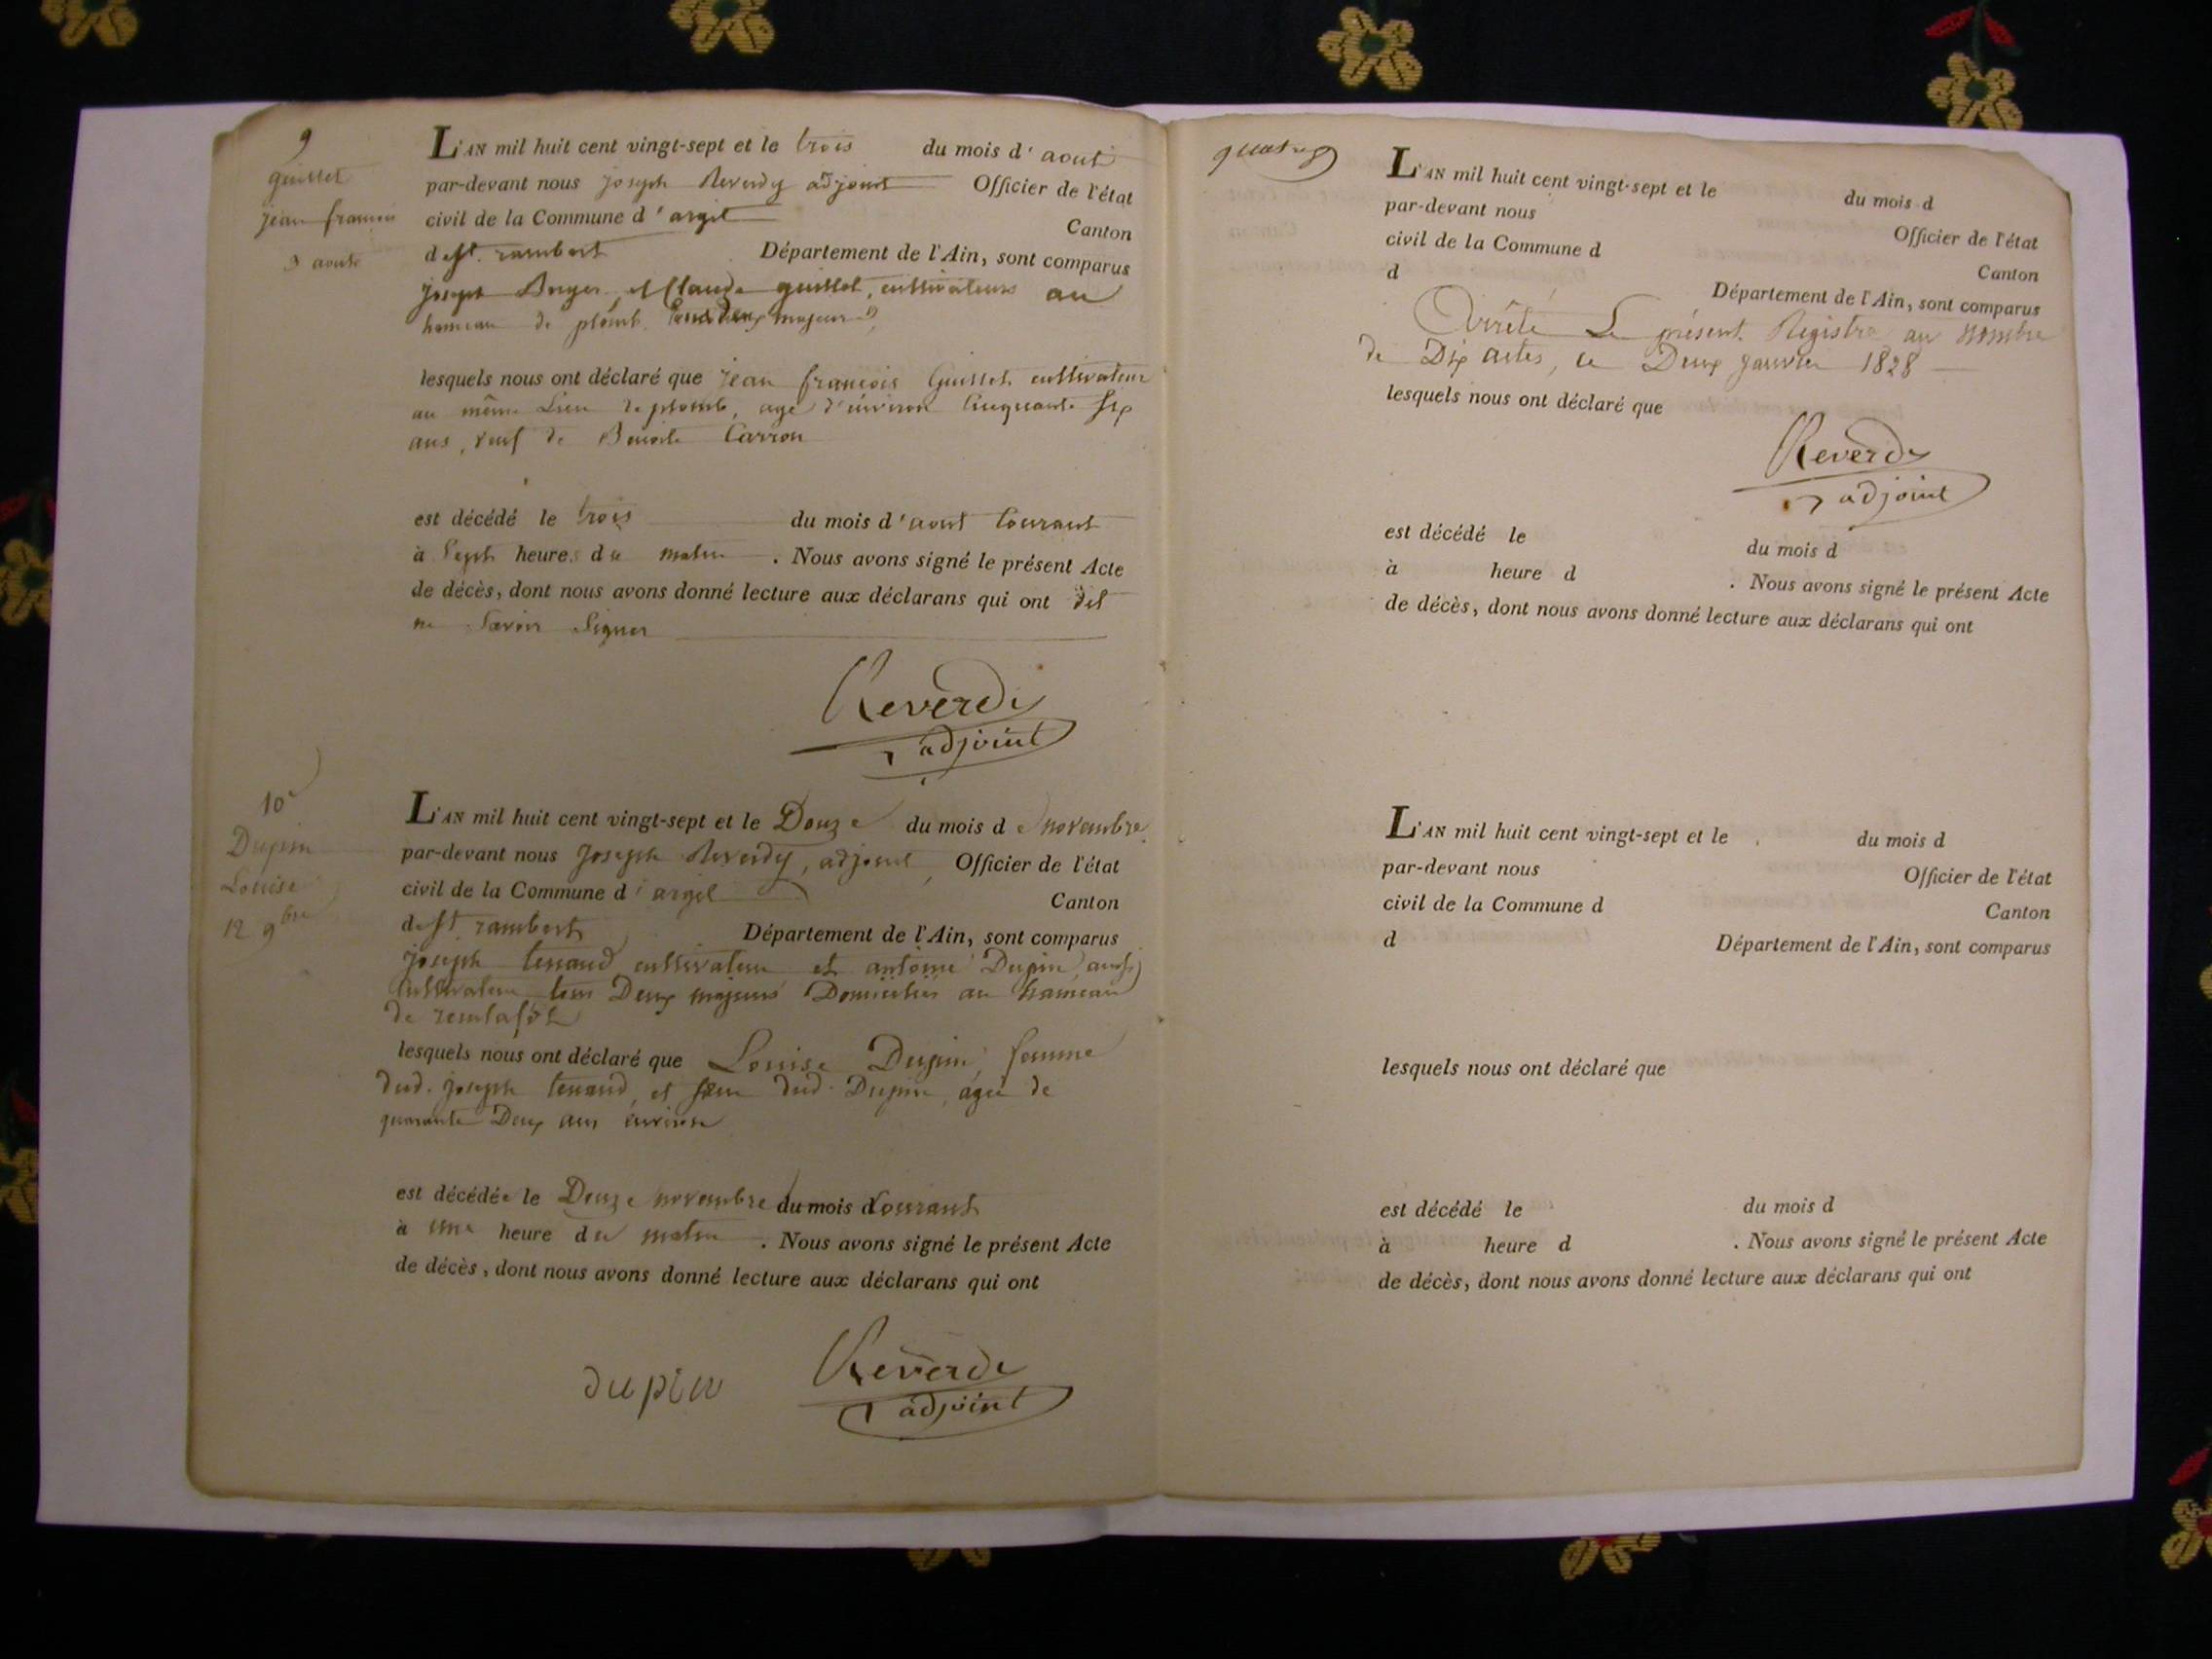 9
guillet
jean francois
3 aoust
L'AN mil huit cent vingt-sept et le trois du mois d'aout
par-devant nous joseph Reverdy adjoint Officier de l'état
civil de la Commune d'argit Canton
de St. rambert Département de l'Ain, sont comparus
joseph Berger et Claude guillet, cultivateurs au
hameau de plomb, tous deux majeurs
lesquels nous ont déclaré que jean francois Guillet cultivateur
au même Lieu de plomb, agé d'environ Cinquante Six
ans, veuf de Benoite Carron
est décédé le trois du mois d'aout Courant
à Sept heures du matin. Nous avons signé le présent Acte
de décès, dont nous avons donné lecture aux déclarans qui ont dit
ne Savoir Signer
Reverdi
adjoint
10e
Dupin
Louise
12 9bre
L'AN mil huit cent vingt-sept et le Douze du mois de novembre
par-devant nous Joseph Reverdy, adjoint, Officier de l'état
civil de la Commune d'argit Canton
de St rambert Département de l'Ain, sont comparus
joseph tenand cultivateur et antoine Dupin, aussi
Cultivateur tous Deux majeurs Domiciliés au hameau
de
lesquels nous ont déclaré que Louise Dupin, femme
dud. joseph tenand, et sœur dud. Dupin, agée de
quarante Deux ans environ
est décédée le Douze novembre du mois d Courant
à une heure du matin. Nous avons signé le présent Acte
de décès, dont nous avons donné lecture aux déclarans qui ont
dupin
Reverdi
adjoint
quatre
L'AN mil huit cent vingt-sept et le du mois d
par-devant nous Officier de l'état
civil de la Commune d Canton
d Département de l'Ain, sont comparus
Arrêté Le présent Registre au nombre
de Dix actes, ce Deux janvier 1828
lesquels nous ont déclaré que
Reverdi
adjoint
est décédé le du mois d
à heure d . Nous avons signé le présent Acte
de décès, dont nous avons donné lecture aux déclarans qui ont
L'AN mil huit cent vingt-sept et le du mois d
par-devant nous Officier de l'état
civil de la Commune d Canton
d Département de l'Ain, sont comparus
lesquels nous ont déclaré que
est décédé le du mois d
à heure d . Nous avons signé le présent Acte
de décès, dont nous avons donné lecture aux déclarans qui ont